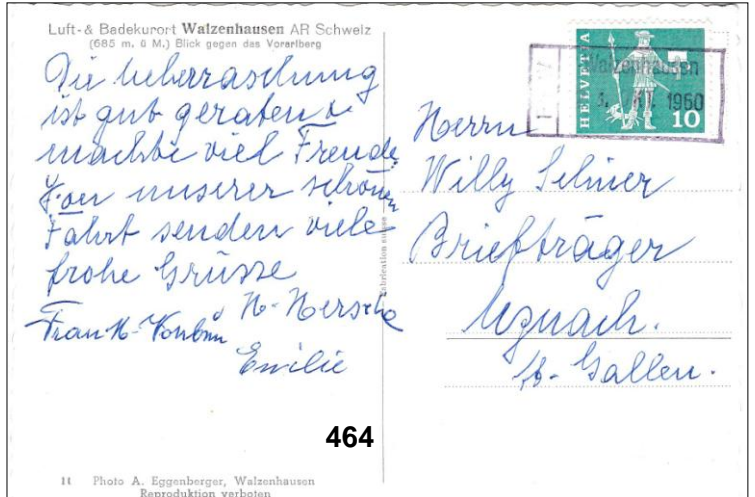 Luft- & Badekurort Walzenhausen AR Schweiz
(685 m. ü M.) Blick gegen das Vorarlberg
Die Ueberraschung
ist gut geraten &
machte viel Freude.
Von unserer schönen
Fahrt senden viele
frohe Grüsse
N. Hersche
Frau
Emilie
HELVETIA
10
Walzenhausen
1960
Herrn
Willy
Briefträger
Uznach.
St. Gallen.
Fabrication suisse
464
11 Photo A. Eggenberger, Walzenhausen
Reproduktion verboten